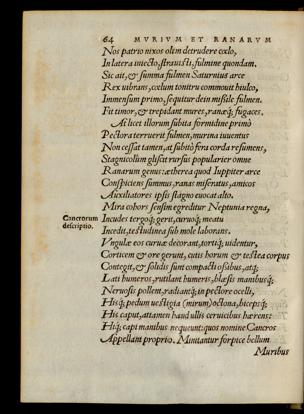 64 MVRIVM ET RANARVM
Nos patrio nixos olim detrudere cœlo,
In latera iniecto, strauisti, fulmine quondam.
Sic ait, & summa fulmen Saturnius arce
Rex uibrans, cœlum tonitru commouit hiulco,
Immensum primo, sequitur dein missile fulmen.
Fit timor, & trepidant mures, ranæq́; fugaces.
At licet illorum subita formidine primò
Pectora terruerit fulmen, murina iuuentus
Non cessat tamen, at subitò fera corda resumens,
Stagnicolûm gliscit rursus popularier omne
Ranarum genus: ætherea quod Iuppiter arce
Conspiciens summus, ranas miseratus, amicos
Auxiliatores ipsis stagno euocat alto.
Mira cohors sensim egreditur Neptunia regna,
Cancrorum descriptio.
Incudes tergoq́; gerit, curuoq́; meatu
Incedit, testudinea sub mole laborans.
Vngulæ eos curuæ decorant, tortiq́; uidentur,
Corticem & ore gerunt, cutis horum & testea corpus
Contegit, & solidis sunt compacti ossibus, atq́;
Lati humeros, rutilant humeris, blæsis manibusq́;
Neruosis pollent, radiantq́; in pectore ocelli,
Hisq́; pedum uestigia (mirum) octona, bicepsq́;
His caput, attamen haud ullis ceruicibus hærens:
Hiq́; capi manibus nequeunt: quos nomine Cancros
Appellant proprio. Minitantur forpice bellum
Muribus